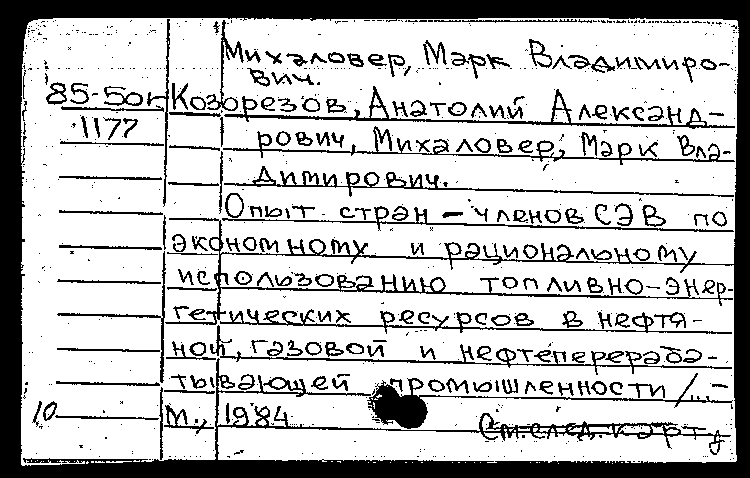 Михаловер, Марк Владимиро-
вич.
85-50к Козорезов, Анатолий Александ-
1177 рович, Михаловер, Марк Вла-
димирович.
Опыт стран - членов СЭВ по
экономному и рациональному
использованию топливно-энер-
гетических ресурсов в нефтя-
ной, газовой и нефтеперераба-
тывающей промышленности /...-
10 М., 1984
См. след. карт.